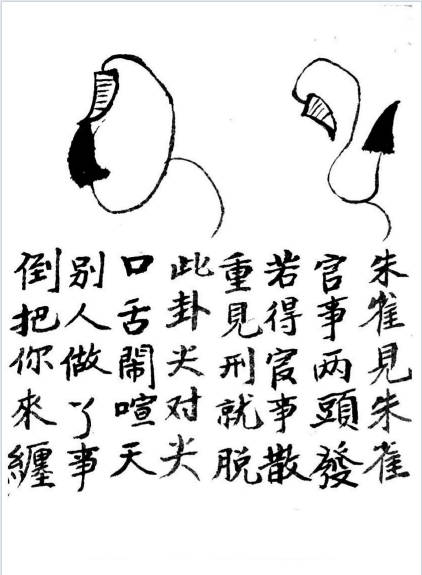 朱雀見朱雀
官事两頭發
若得官事散
重見刑就脱
此卦尖对尖
口舌鬧喧天
别人做了事
倒把你來纏